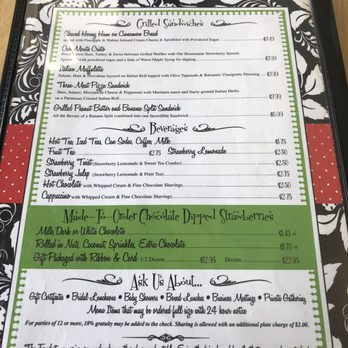 Grilled Sandwiches
Shaved Honey Ham on Cinnamon Bread
with Pineapple & Walnut Infused Cream Cheese & Sprinkled with Powdered Sugar
Our Monte Cristo
Ham, Turkey & Swiss between Grilled Waffles with Our Homemade Strawberry Spread,
with powdered sugar and a Side of Warm Maple Syrup for dipping
Italian Muffuletta
Salami, Ham & Provolone layered on Italian Roll topped with Olive Tapenade & Balsamic Vinaigrette Dressing
Three-Meat Pizza Sandwich
Ham, Salami, Mozzarella Cheese & Pepperoni with Marinara sauce and finely ground Italian Herbs
on a Parmesan Crusted Italian Roll
Grilled Peanut Butter and Banana Split Sandwich
All the flavors of a Banana Split combined into our Incredible Sandwich $6.99
Beverages
Hot Tea, Iced Tea, Can Sodas, Coffee, Milk
Fruit Tea $2.75 Strawberry Lemonade $2.50
Strawberry Twist (Strawberry Lemonade & Sweet Tea Combo) $2.50
Strawberry Julep (Strawberry Lemonade & Fruit Tea) $2.75
Hot Chocolate with Whipped Cream & Fine Chocolate Shavings $2.50
Cappuccino with Whipped Cream & Fine Chocolate Shavings $2.75
Made-To-Order Chocolate Dipped Strawberries
Milk, Dark or White Chocolate
Rolled in Nuts, Coconut, Sprinkles, Extra Chocolate
Gift Packaged with Ribbon & Card 1/2 Dozen $12.95 Dozen $22.95
Ask Us About...
Gift Certificates • Bridal Luncheons • Baby Showers • Boxed Lunches • Business Meetings • Private Gathering
Menu Items that may be ordered full size with 24 hours notice
For parties of 12 or more, 18% gratuity may be added to the check. Sharing is allowed with an additional plate charge of $2.00.